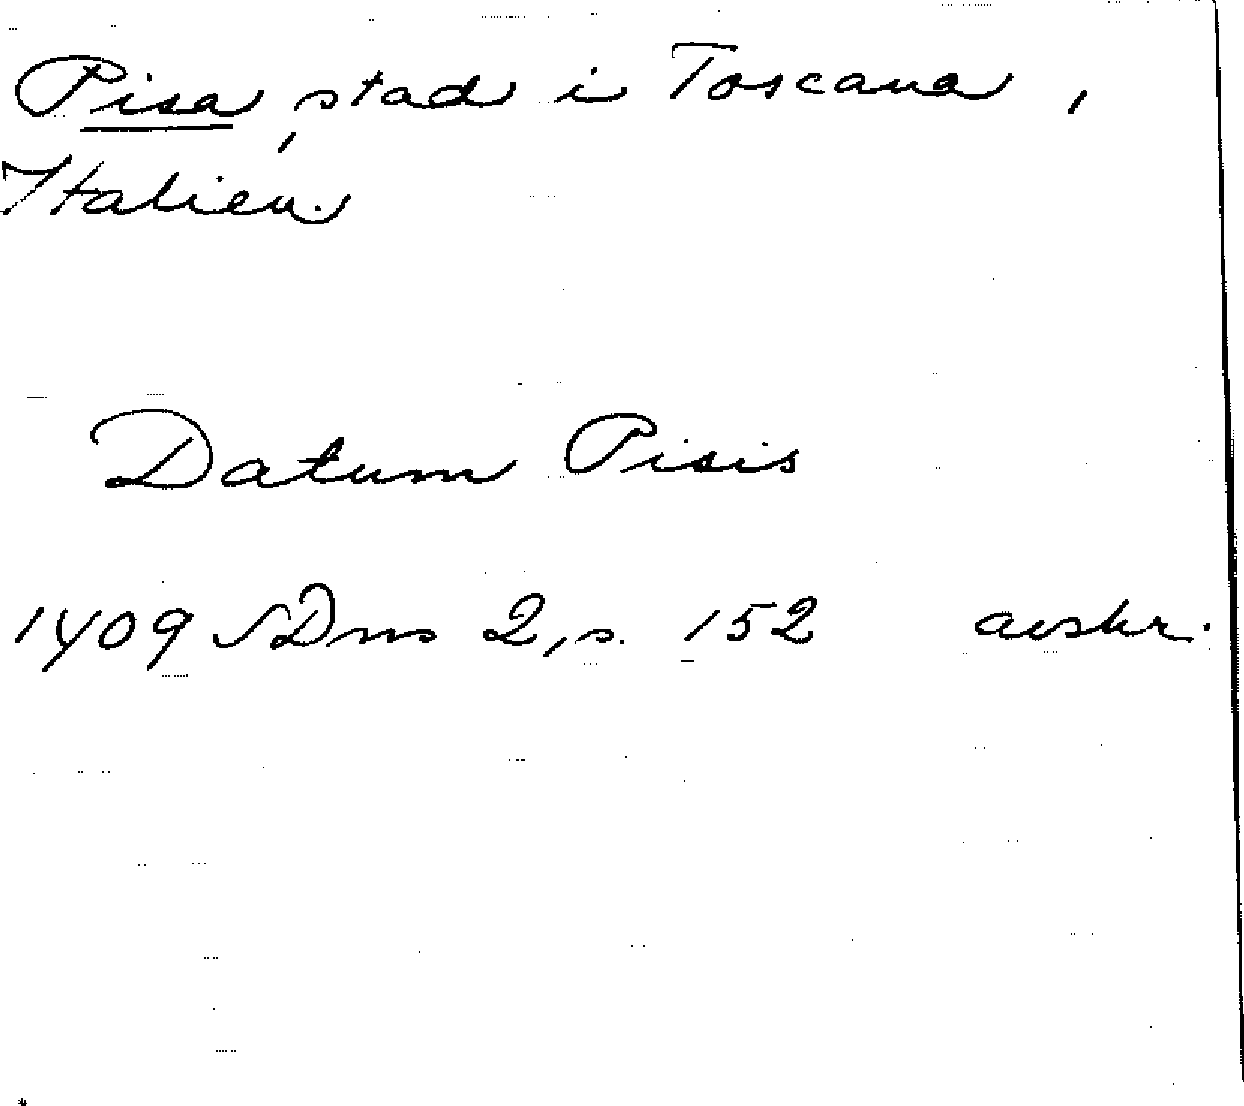 Pisa, stad i Toscana,
Italien.
Datum Pisis
1409 SDns 2, s. 152 avskr.